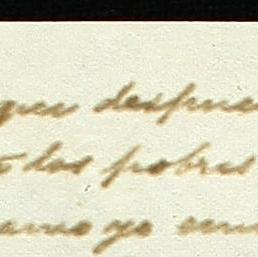 que despues
los pobres
como yo